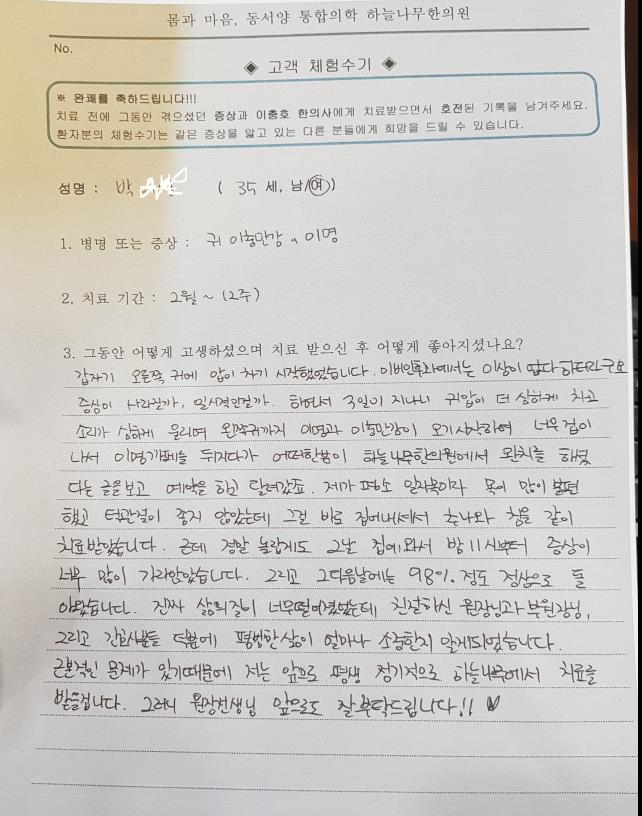 몸과 마음, 동서양 통합의학 하늘나무한의원
No.
◈ 고객 체험수기 ◈
※ 완쾌를 축하드립니다!!!
치료 전에 그동안 겪으셨던 증상과 이충호 한의사에게 치료받으면서 호전된 기록을 남겨주세요.
환자분의 체험수기는 같은 증상을 앓고 있는 다른 분들에게 희망을 드릴 수 있습니다.
성명 : 박 ( 35 세, 남/여)
1. 병명 또는 증상 : 귀 이충만감, 이명
2. 치료 기간 : 2월 ~ (2주)
3. 그동안 어떻게 고생하셨으며 치료 받으신 후 어떻게 좋아지셨나요?
갑자기 오른쪽 귀에 압이 차기 시작했었습니다. 이비인후과에서는 이상이 없다 하더라구요
증상이 사라질까, 일시적인걸까. 하면서 3일이 지나니 귀압이 더 심하게 차고
소리가 심하게 울리며 왼쪽귀까지 이명과 이충만감이 오기시작하여 너무 겁이
나서 이명카페를 뒤지다가 어떠한분이 하늘나무한의원에서 완치를 하셨
다는 글을보고 예약을 하고 달려갔죠. 제가 평소 일자목이라 목이 많이 불편
했고 턱관절이 좋지 않았는데 그걸 바로 집어내셔서 추나와 침을 같이
치료받았습니다. 근데 정말 놀랍게도 2날 집에와서 밤 11시부터 증상이
너무 많이 가라앉았습니다. 그리고 그다음날에는 98% 정도 정상으로 돌
아왔습니다. 진짜 삶의질이 너무떨어졌었는데 친절하신 원장님과 부원장님,
그리고 간호사분들 덕분에 평범한 삶이 얼마나 소중한지 알게되었습니다.
근본적인 문제가 있기때문에 저는 앞으로 평생 정기적으로 하늘나무에서 치료를
받을겁니다. 그러니 원장선생님 앞으로도 잘부탁드립니다!! ♥